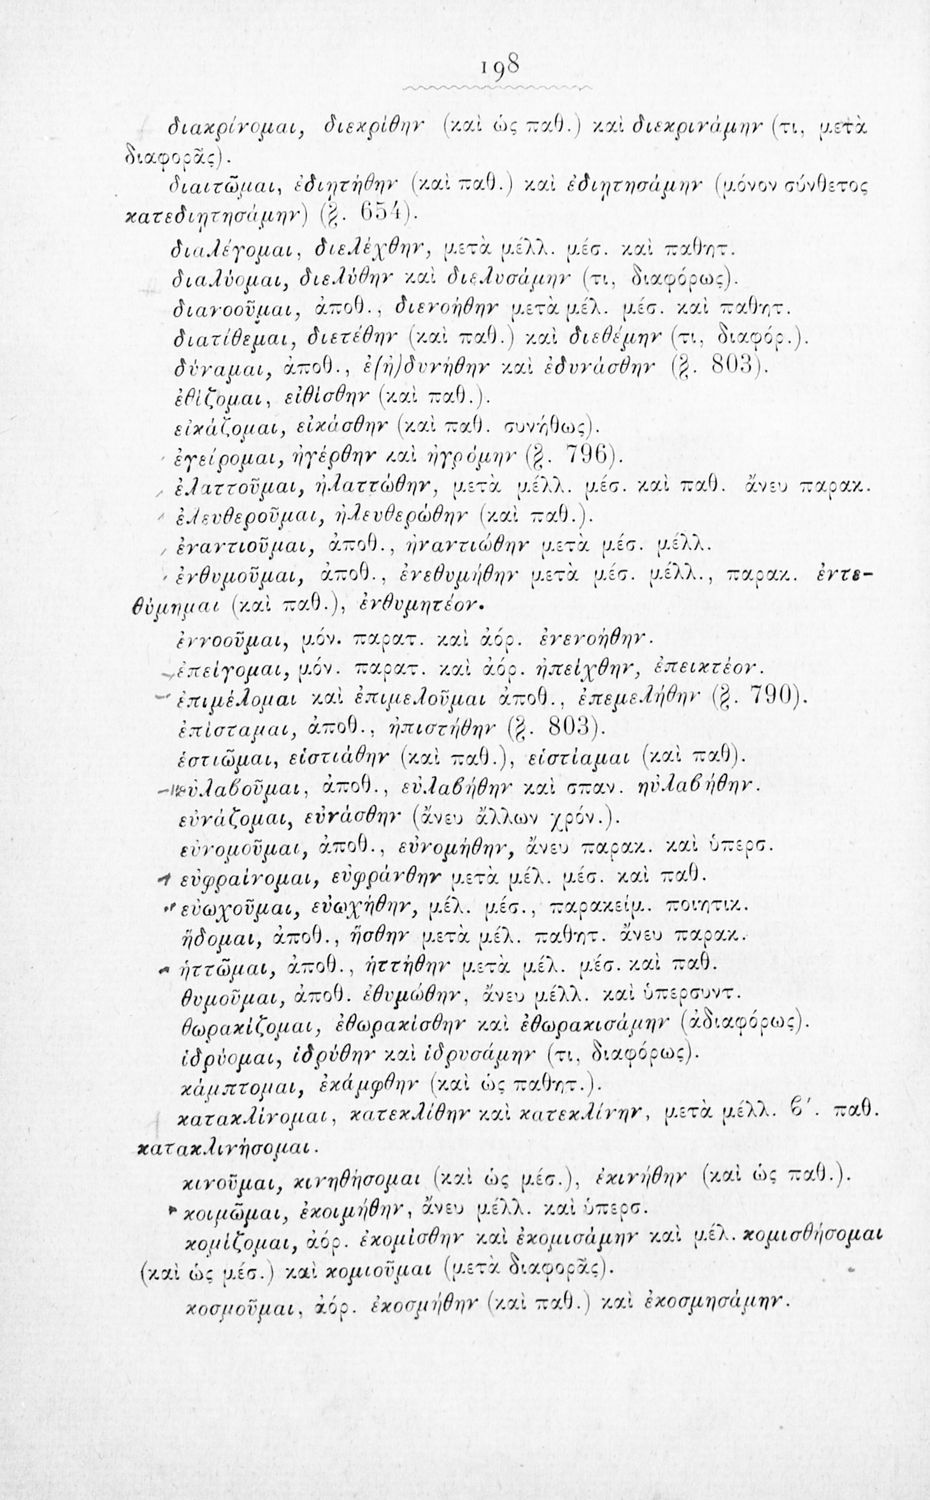 198
διακρίνομαι, διεκρίθην (καὶ ὡς παθ.) καὶ διεκρινάμην (τι, μετὰ
διαφορᾶς).
διαιτῶμαι, ἐδιῃτήθην (καὶ παθ.) καὶ ἐδιῃτησάμην (μόνον σύνθετος
κατεδιῃτησάμην) (§. 654).
διαλέγομαι, διελέχθην, μετὰ μέλλ. μέσ. καὶ παθητ.
διαλύομαι, διελύθην καὶ διελυσάμην (τι, διαφόρως).
διανοοῦμαι, ἀποθ., διενοήθην μετὰ μέλ. μέσ. καὶ παθητ.
διατίθεμαι, διετέθην (καὶ παθ.) καὶ διεθέμην (τι, διαφόρ.).
δύναμαι, ἀποθ., ἐ(ἠ)δυνήθην καὶ ἐδυνάσθην (§. 803).
ἐθίζομαι, εἰθίσθην (καὶ παθ.).
εἰκάζομαι, εἰκάσθην (καὶ παθ. συνήθως).
ἐγείρομαι, ἠγέρθην καὶ ἠγρόμην (§. 796).
ἐλαττοῦμαι, ἠλαττώθην, μετὰ μέλλ. μέσ. καὶ παθ. ἄνευ παρακ.
ἐλευθεροῦμαι, ἠλευθερώθην (καὶ παθ.).
ἐναντιοῦμαι, ἀποθ., ἠναντιώθην μετὰ μέσ. μέλλ.
ἐνθυμοῦμαι, ἀποθ., ἐνεθυμήθην μετὰ μέσ. μέλλ., παρακ. ἐντε-
θύμημαι (καὶ παθ.), ἐνθυμητέον.
ἐννοοῦμαι, μόν. παρατ. καὶ ἀόρ. ἐνενοήθην.
ἐπείγομαι, μόν. παρατ. καὶ ἀόρ. ἠπείχθην, ἐπεικτέον.
ἐπιμέλομαι καὶ ἐπιμελοῦμαι ἀποθ., ἐπεμελήθην (§. 790).
ἐπίσταμαι, ἀποθ., ἠπιστήθην (§. 803).
ἑστιῶμαι, εἱστιάθην (καὶ παθ.), εἱστίαμαι (καὶ παθ).
εὐλαβοῦμαι, ἀποθ., εὐλαβήθην καὶ σπαν. ηὐλαβήθην.
εὐνάζομαι, εὐνάσθην (ἄνευ ἄλλων χρόν.).
εὐνομοῦμαι, ἀποθ., εὐνομήθην, ἄνευ παρακ. καὶ ὑπερσ.
εὐφραίνομαι, εὐφράνθην μετὰ μέλ. μέσ. καὶ παθ.
εὐωχοῦμαι, εὐωχήθην, μέλ. μέσ., παρακείμ. ποιητικ.
ἥδομαι, ἀποθ., ἥσθην μετὰ μέλ. παθητ. ἄνευ παρακ.
ἡττῶμαι, ἀποθ., ἡττήθην μετὰ μέλ. μέσ. καὶ παθ.
θυμοῦμαι, ἀποθ. ἐθυμώθην, ἄνευ μέλλ. καὶ ὑπερσυντ.
θωρακίζομαι, ἐθωρακίσθην καὶ ἐθωρακισάμην (ἀδιαφόρως).
ἱδρύομαι, ἱδρύθην καὶ ἱδρυσάμην (τι, διαφόρως).
κάμπτομαι, ἐκάμφθην (καὶ ὡς παθητ.).
κατακλίνομαι, κατεκλίθην καὶ κατεκλίνην, μετὰ μέλλ. β΄. παθ.
κατακλινήσομαι.
κινοῦμαι, κινηθήσομαι (καὶ ὡς μέσ.), ἐκινήθην (καὶ ὡς παθ.).
κοιμῶμαι, ἐκοιμήθην, ἄνευ μέλλ. καὶ ὑπερσ.
κομίζομαι, ἀόρ. ἐκομίσθην καὶ ἐκομισάμην καὶ μέλ. κομισθήσομαι
(καὶ ὡς μέσ.) καὶ κομιοῦμαι (μετὰ διαφορᾶς).
κοσμοῦμαι, ἀόρ. ἐκοσμήθην (καὶ παθ.) καὶ ἐκοσμησάμην.